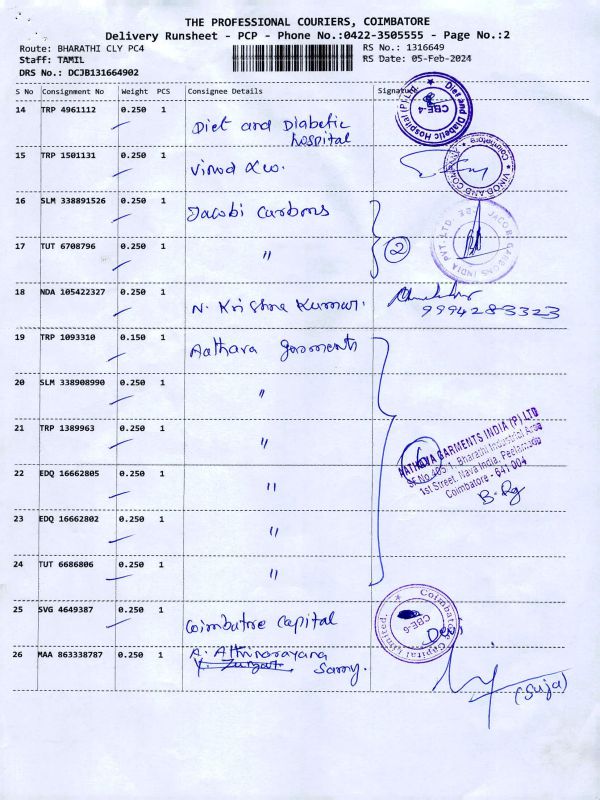 THE PROFESSIONAL COURIERS, COIMBATORE
Delivery Runsheet - PCP - Phone No.:0422-3505555 - Page No.:2
Route: BHARATHI CLY PC4 RS No.: 1316649
Staff: TAMIL RS Date: 05-Feb-2024
DRS No.: DCJB131664902
S No Consignment No Weight PCS Consignee Details Signature
14 TRP 4961112 0.250 1 Diet and Diabetic
hospital
Diet and Diabetic Hospital (P) Ltd
CBE-4
15 TRP 1501131 0.250 1 Vinod &co.
VINOD AND COMPANY
Coimbatore
16 SLM 338891526 0.250 1 Jacobi Carbons
JACOBI CARBONS INDIA PVT. LTD.
17 TUT 6708796 0.250 1 〃 2
18 NDA 105422327 0.250 1 N. Krishna Kumar.
9994283323
19 TRP 1093310 0.150 1 Aathava garments
20 SLM 338908990 0.250 1 〃
21 TRP 1389963 0.250 1 〃
6
AATHAVA GARMENTS INDIA (P) LTD
SF.No.485-1, Bharathi Industrial Area
1st Street, Nava India, Peelamedu
Coimbatore - 641 004
22 EDQ 16662805 0.250 1 〃
23 EDQ 16662802 0.250 1 〃
24 TUT 6686806 0.250 1 〃
25 SVG 4649387 0.250 1 Coimbatore Capital
Coimbatore Capital Limited.
CBE-6
Devi
26 MAA 863338787 0.250 1 A. Athinarayana
Samy.
(Suja)